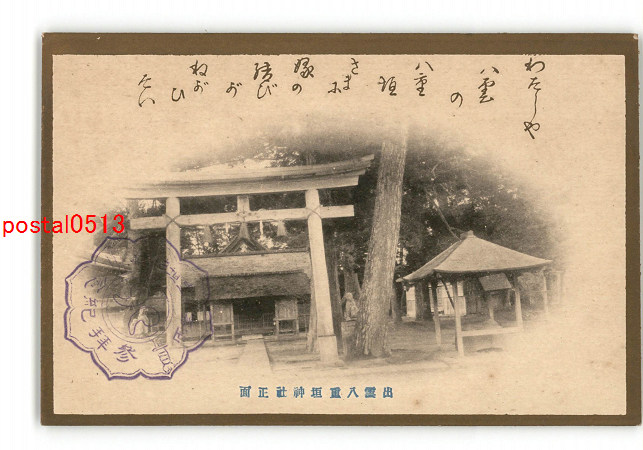 わたしや
八雲
の
八重
垣
さまに
縁の
結び
が
ねがひ
たい
postal0513
参拝
紀
出雲八重垣神社正面